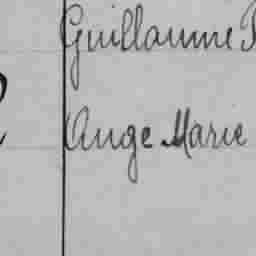 Guillaume
Ange Marie